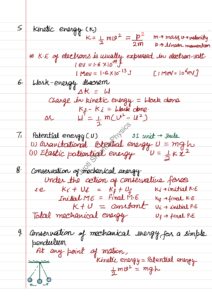 5 Kinetic energy (K)
K = 1/2 mv² = p²/2m m → mass v → velocity
p → linear momentum
* K.E of electrons is usually expressed in electron-volt
1 eV = 1.6 × 10⁻¹⁹ J
1 MeV = 1.6 × 10⁻¹³ J [1 MeV = 10⁶ eV]
6. Work-energy theorem
ΔK = W
Change in kinetic energy = Work done
Kf - Ki = Work done
or W = 1/2 m(v² - u²)
7. Potential energy (U) SI unit → Joule
(i) Gravitational Potential energy U = mgh
(ii) Elastic potential energy U = 1/2 kx²
8 Conservation of mechanical energy
Under the action of conservative forces
i.e Ki + Ui = Kf + Uf Ki → initial K.E
Initial M.E = Final M.E Kf → final K.E
K + U = constant Ui → initial P.E
Total mechanical energy Uf → final P.E
9 Conservation of mechanical energy for a simple
pendulum
At any point of motion,
Kinetic energy = Potential energy
1/2 mv² = mgh
Physics